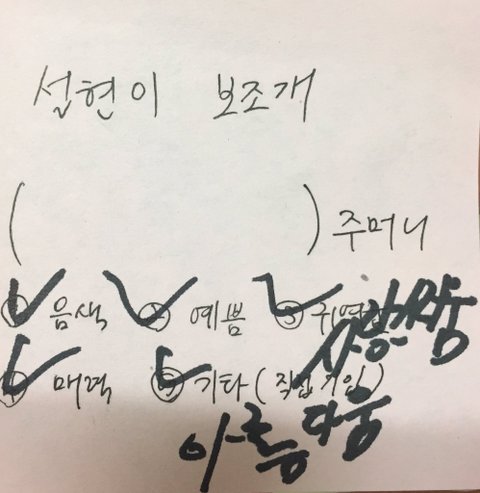 설현이 보조개
( ) 주머니
① 음색 ② 예쁨 ③ 귀여움
사랑스러움
④ 매력 ⑤ 기타 ( 직접 기입 )
아름다움